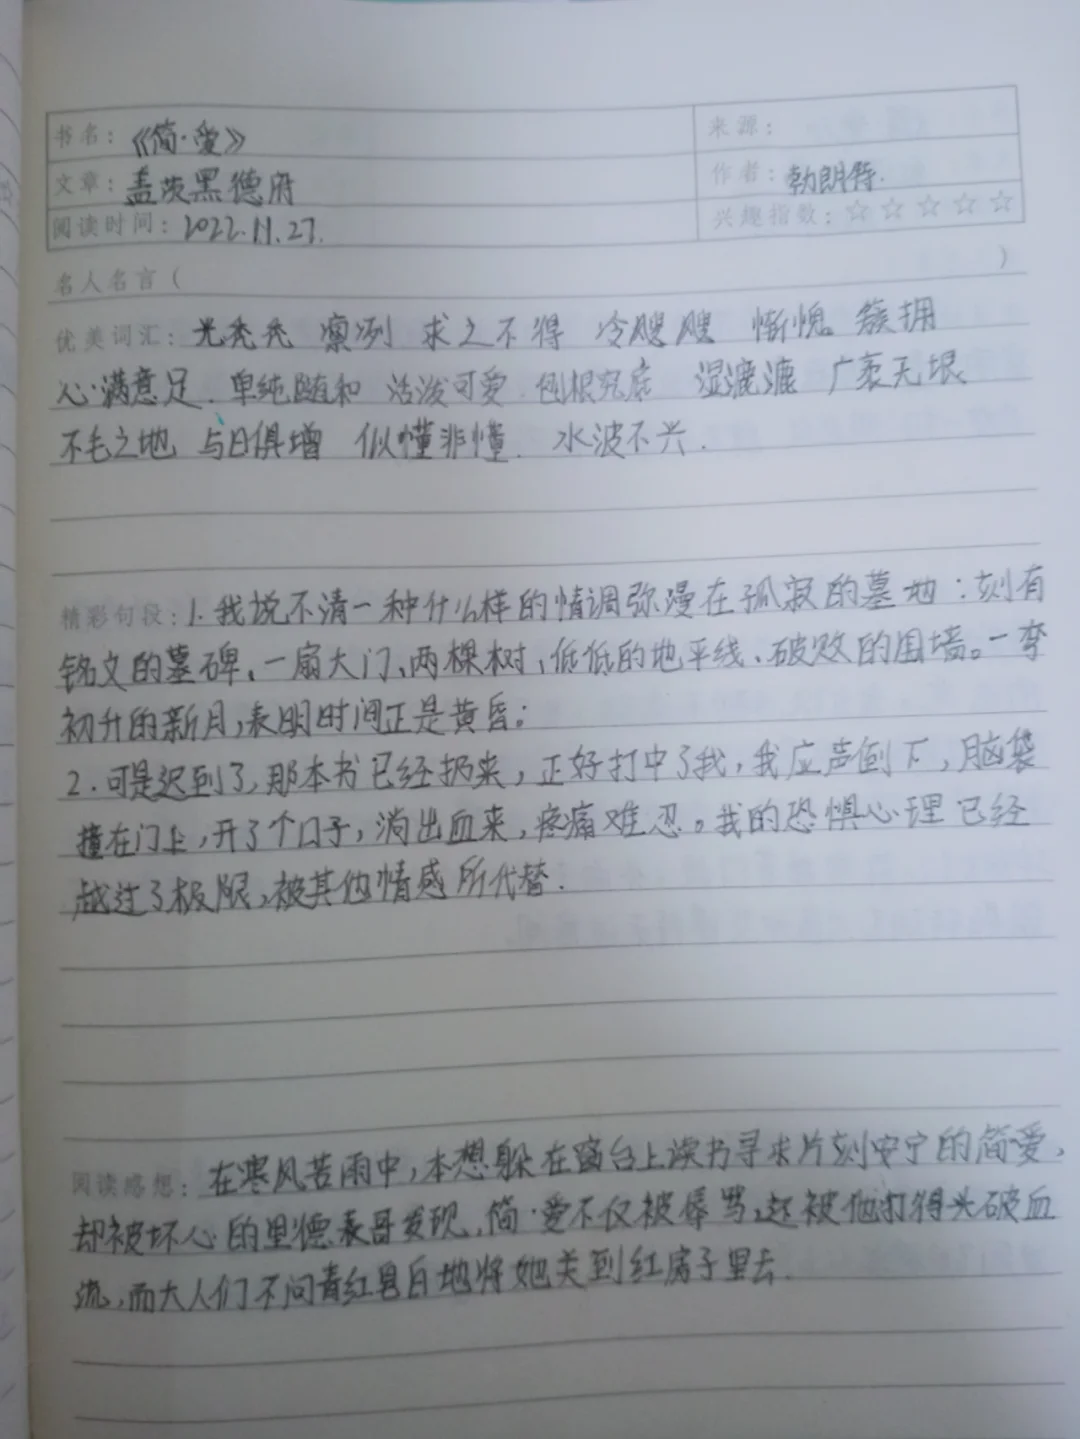 书名：《简·爱》
来源：
文章：盖茨黑德府
作者：勃朗特.
阅读时间：2022.11.27.
兴趣指数：☆☆☆☆☆
名人名言（ ）
优美词汇：光秃秃 凛冽 求之不得 冷飕飕 惭愧 簇拥
心满意足. 单纯随和 活泼可爱. 刨根究底 湿漉漉 广袤无垠
不毛之地 与日俱增 似懂非懂. 水波不兴.
精彩句段：1.我说不清一种什么样的情调弥漫在孤寂的墓地：刻有
铭文的墓碑、一扇大门、两棵树、低低的地平线、破败的围墙。一弯
初升的新月,表明时间正是黄昏；
2.可是迟到了,那本书已经扔来，正好打中了我，我应声倒下，脑袋
撞在门上，开了个口子，淌出血来，疼痛难忍。我的恐惧心理已经
越过了极限,被其他情感所代替.
阅读感想：在寒风苦雨中，本想躲在窗台上读书寻求片刻安宁的简·爱，
却被坏心的里德表哥发现，简·爱不仅被辱骂,还被他打得头破血
流,而大人们不问青红皂白地将她关到红房子里去.